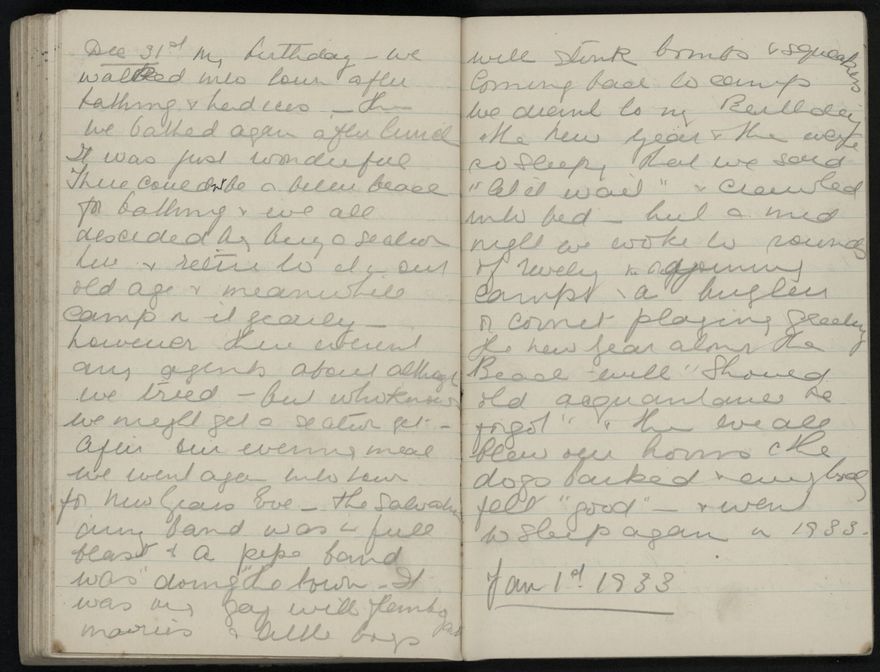 Dec 31st My birthday - we
walked into town after
bathing & had ices - then
we bathed again after lunch
It was just wonderful
There couldn't be a better beach
for bathing & we all
descided to buy a section
here & retire to it in our
old age & meanwhile
camp in it yearly -
however there werent
any agents about although
we tried - but who knows
we might get a section yet -
After our evening meal
we went again into town
for New Years Eve - the Salvation
army band was in full
blast & a pipe band
was "doing" the town - It
was very gay with
& little boys
with stink bombs & squeakers
Coming back to camp
we drank to my Birthday
& the New Year & then were
so sleepy that we said
"let it wait" & crawled
into bed - but a mid
night we woke to sounds
of revelry in adjoining
camps & a bugler
or cornet playing greeting
the new year along the
Beach with "Should
old acquaintance be
forgot" & then we all
blew our horns & the
dogs barked & everybody
felt "good" - & went
to sleep again in 1933.
Jan 1st 1933